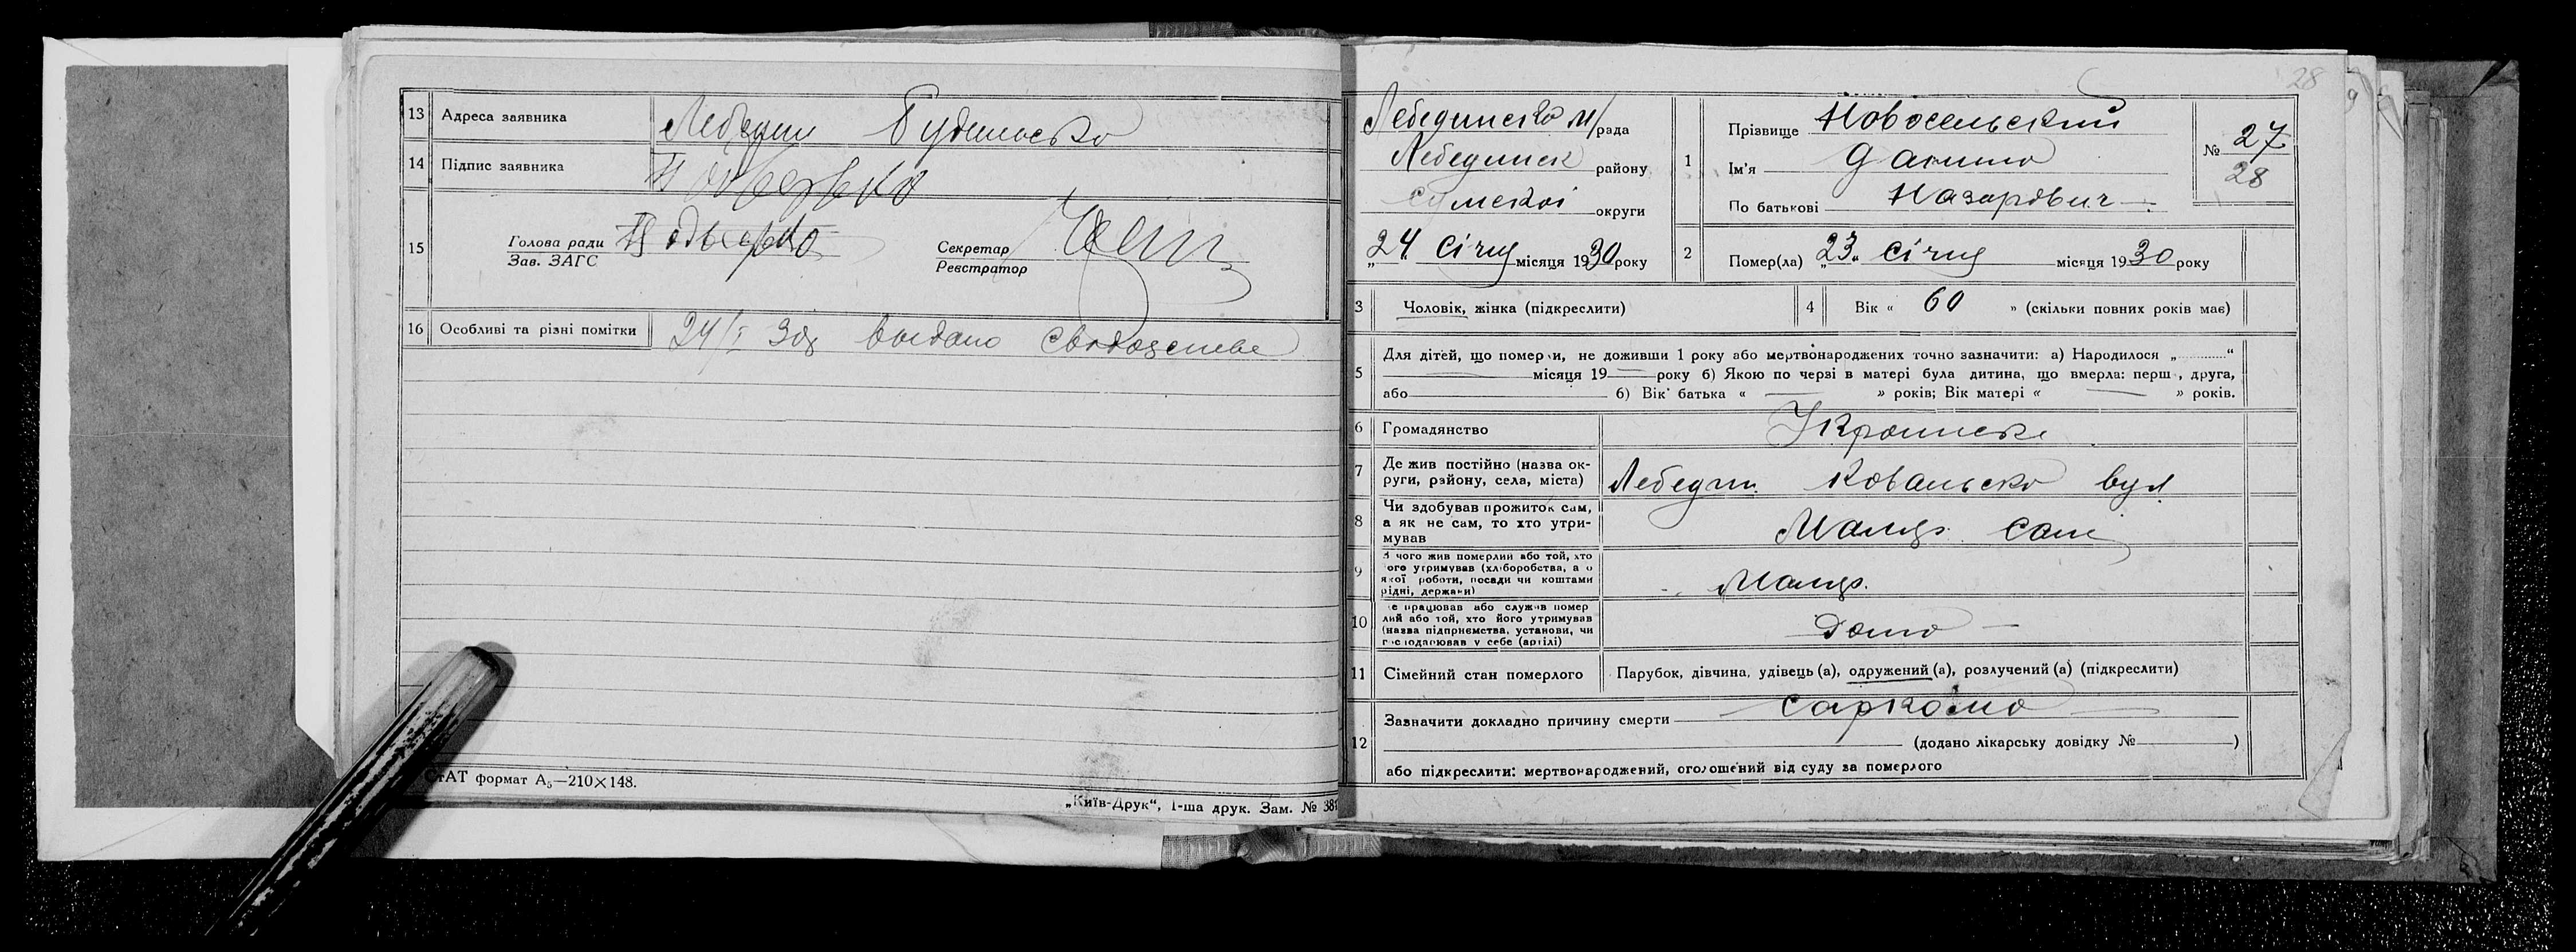 13 Адреса заявника Лебедин Будильська
14 Підпис заявника
15 Голова ради
Зав. ЗАГС
Секретар
Реєстратор
16 Особливі та різні помітки 24/I 30р видано
СтАТ формат А₅—210×148.
„Київ-Друк“, 1-ша друк. Зам. № 38
28
Лебединська м/рада
Лебединск району
Сумскоі округи
„24 січня місяця 1930 року
1 Прізвище Новосельский
Ім'я Данило
По батькові Назарович
№ 27
28
2 Помер(ла) „23“ січня місяця 1930 року
3 Чоловік, жінка (підкреслити)
4 Вік « 60 » (скільки повних років має)
5 Для дітей, що померли, не доживши 1 року або мертвонароджених точно зазначити: а) Народилося „ “
місяця 19 року б) Якою по черзі в матері була дитина, що вмерла: перш , друга,
або б) Вік батька « » років; Вік матері « » років.
6 Громадянство Украинске
7 Де жив постійно (назва ок-
руги, району, села, міста) Лебедин. Ковальска вул
8 Чи здобував прожиток сам,
а як не сам, то хто утри-
мував сам
9 З чого жив померлий або той, хто
його утримував (хліборобства, а о
якої роботи, посади чи коштами
рідні, держави)
10 Де працював або служив помер
лий або той, хто його утримував
(назва підприємства, установи, чи
господарював у себе (артілі) Дома
11 Сімейний стан померлого Парубок, дівчина, удівець (а), одружений (а), розлучений (а) (підкреслити)
12 Зазначити докладно причину смерти саркома
(додано лікарську довідку № )
або підкреслити: мертвонароджений, оголошений від суду за померлого